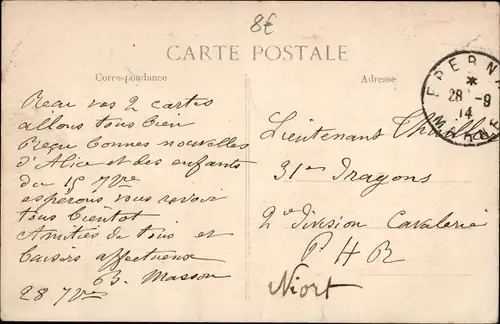 8€
CARTE POSTALE
Correspondance
Adresse
EPERNA
28 -9
14
MARNE
Reçu vos 2 cartes
allons tous bien
Reçu bonnes nouvelles
d'Alice et des enfants
du 15 7bre
espérons vous revoir
tous bientôt
Amitiés de tous et
baisers affectueux
B. Masson
28 7bre
Lieutenant
31e Dragons
2e division Cavalerie
Niort